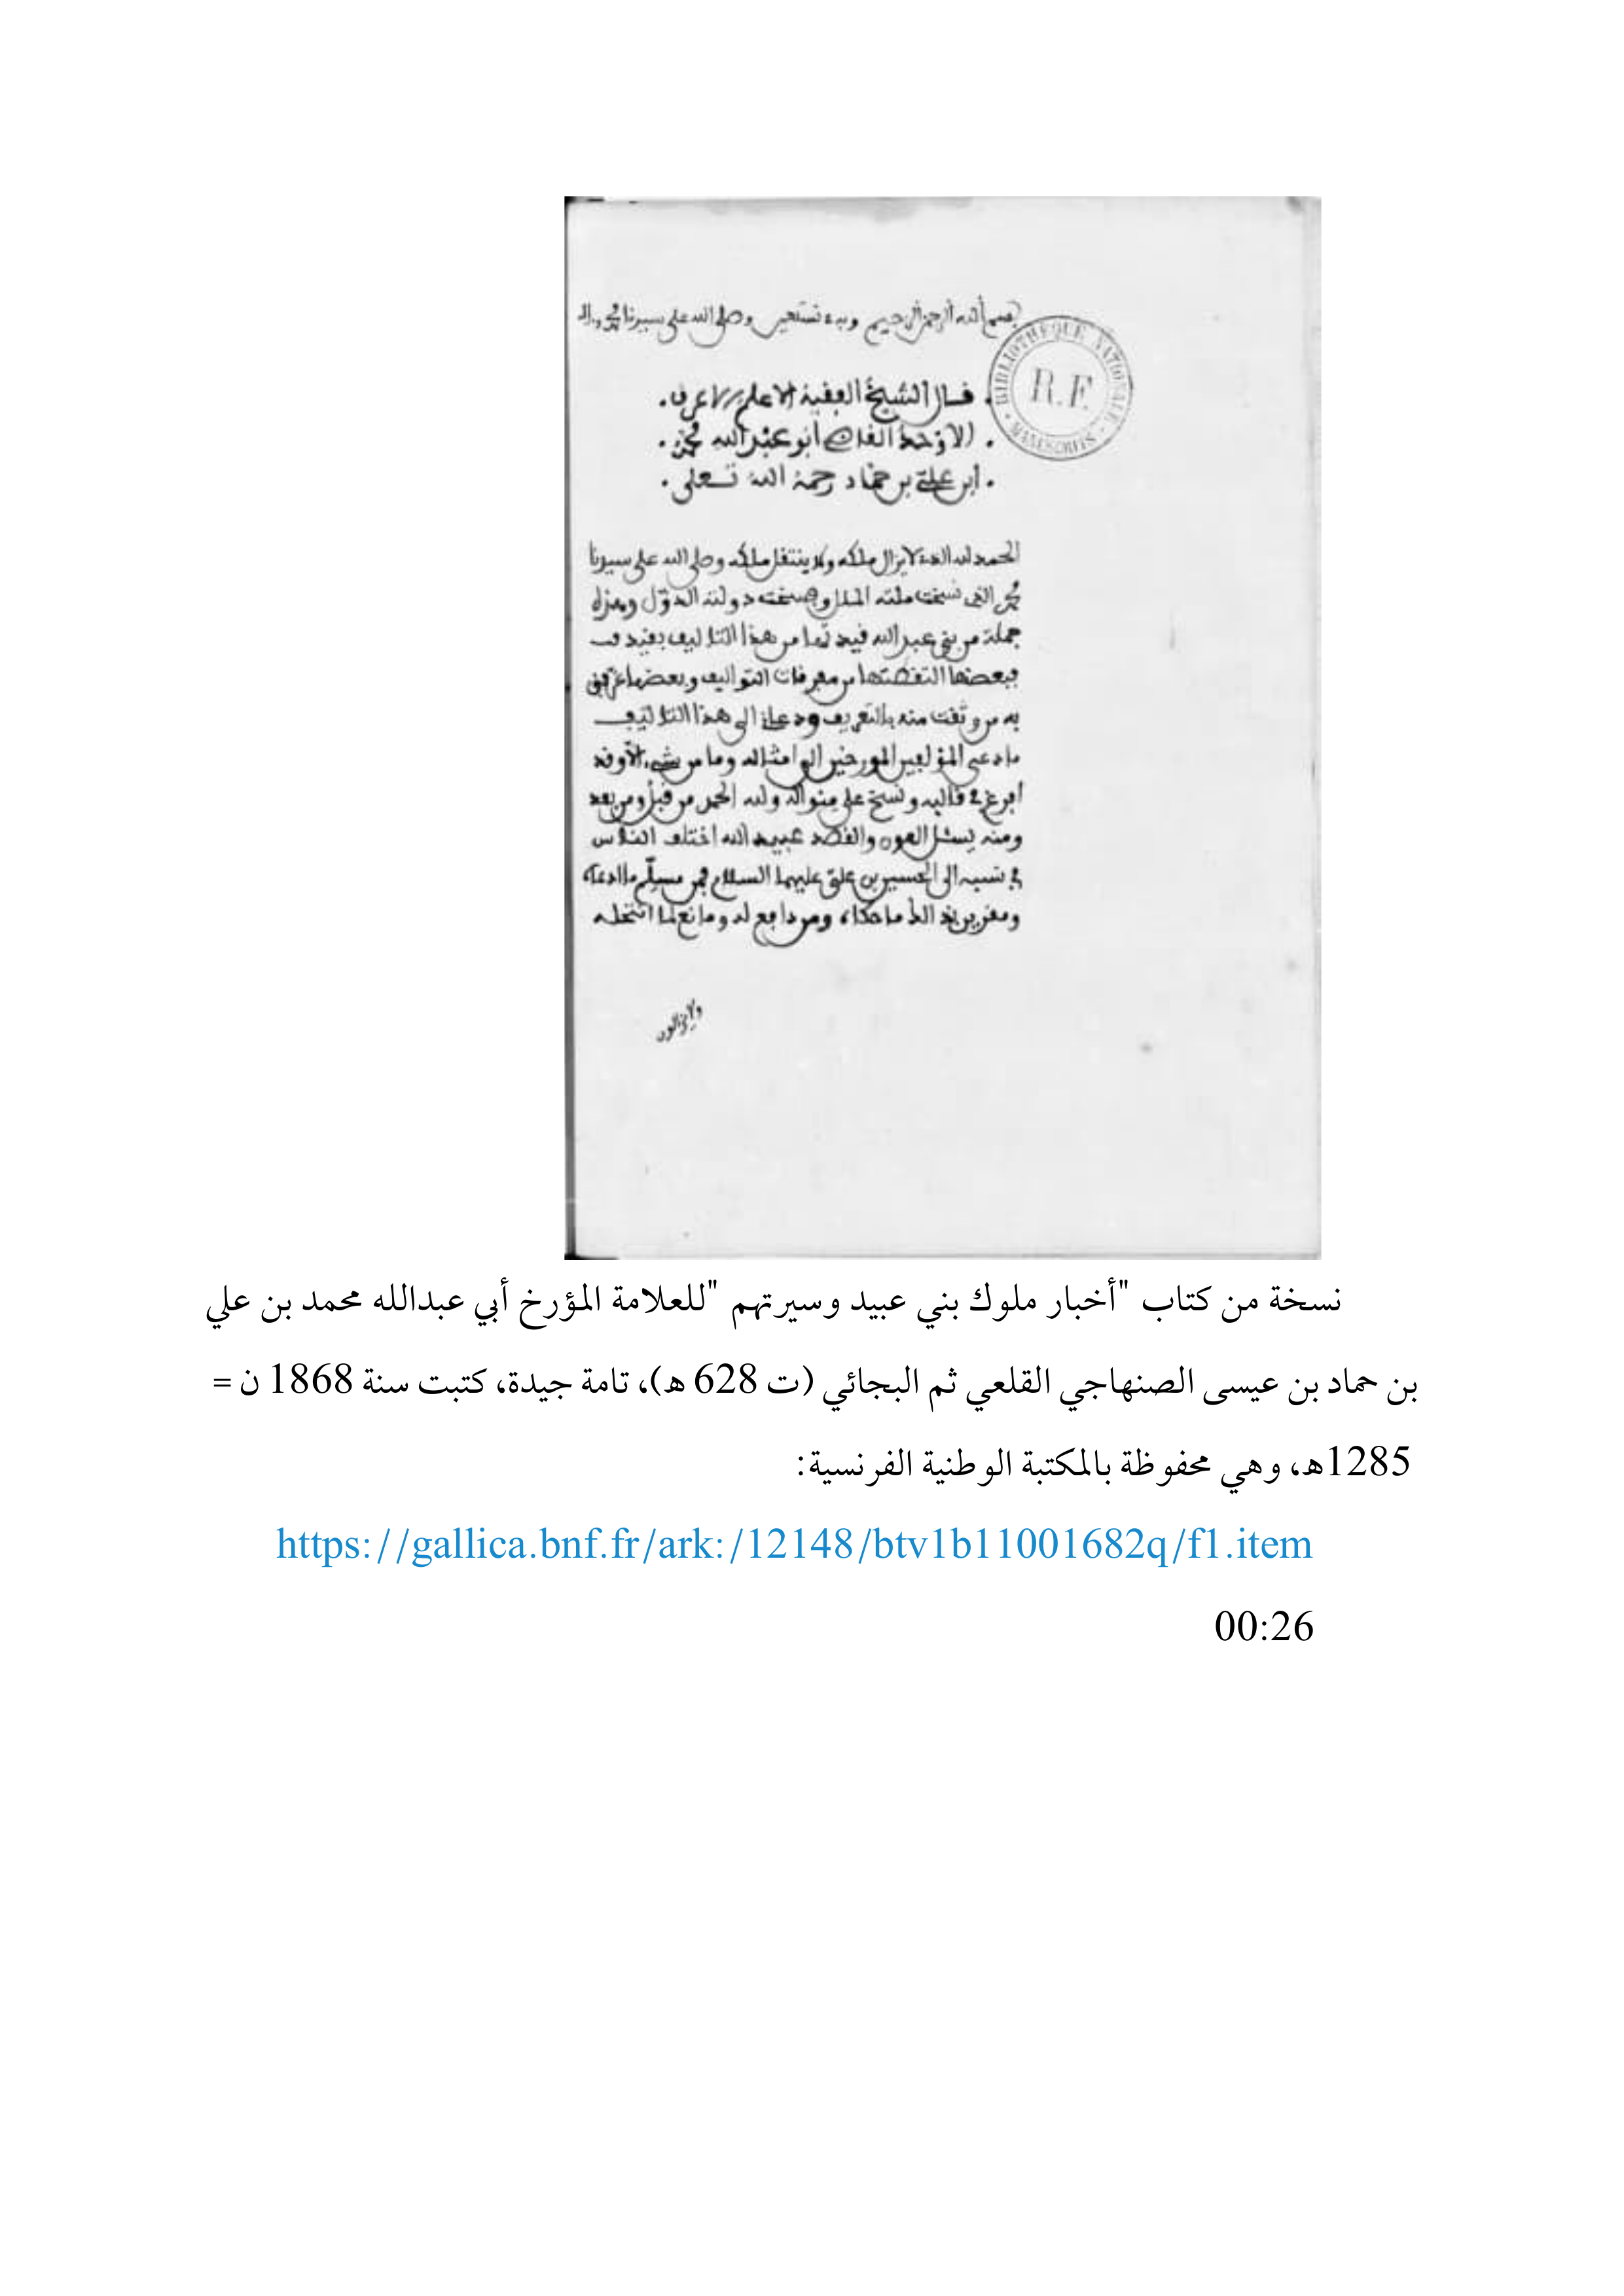 بسم الله الرحمن الرحيم وبه نستعين وصلى الله على سيدنا محمد وءاله
BIBLIOTHEQUE NATIONALE
R.F.
MANUSCRITS
قال الشيخ الفقيه الاعلم الاعرف
الاوحد القاضي أبو عبد الله محمد
ابن علي بن حماد رحمة الله تعلى
الحمد لله الذي لا يزال ملكه ولا ينتقل ملكه وصلى الله على سيدنا
محمد الذي نسخت ملته الملل دولته الدول وهذه
جملة من بني عبيد الله قيدتها من هذا التاليف بقيد
فبعضها التقطتها من مفرقات التواليف وبعضها عرفني
به من وثقت منه بالتعريف ودعاني الى هذا التاليف
ما دعى المؤلفين المورخين الى امثاله وما من شيء الا وقد
افرغ في قالبه ونسج على منواله ولله الحمد من قبل ومن بعد
ومنه يسئل العون والقصد عبيد الله اختلف الناس
في نسبه الى الحسين بن علي عليهما السلام فمن مسلم ما ادعاه
ومقر بذلك ما حكاه ومن دافع له ومانع لما انتحله
ولا يزالون
نسخة من كتاب "أخبار ملوك بني عبيد وسيرتهم "للعلامة المؤرخ أبي عبدالله محمد بن علي
بن حماد بن عيسى الصنهاجي القلعي ثم البجائي (ت 628 ه)، تامة جيدة، كتبت سنة 1868 ن =
1285ه، وهي محفوظة بالمكتبة الوطنية الفرنسية:
https://gallica.bnf.fr/ark:/12148/btv1b11001682q/f1.item
00:26